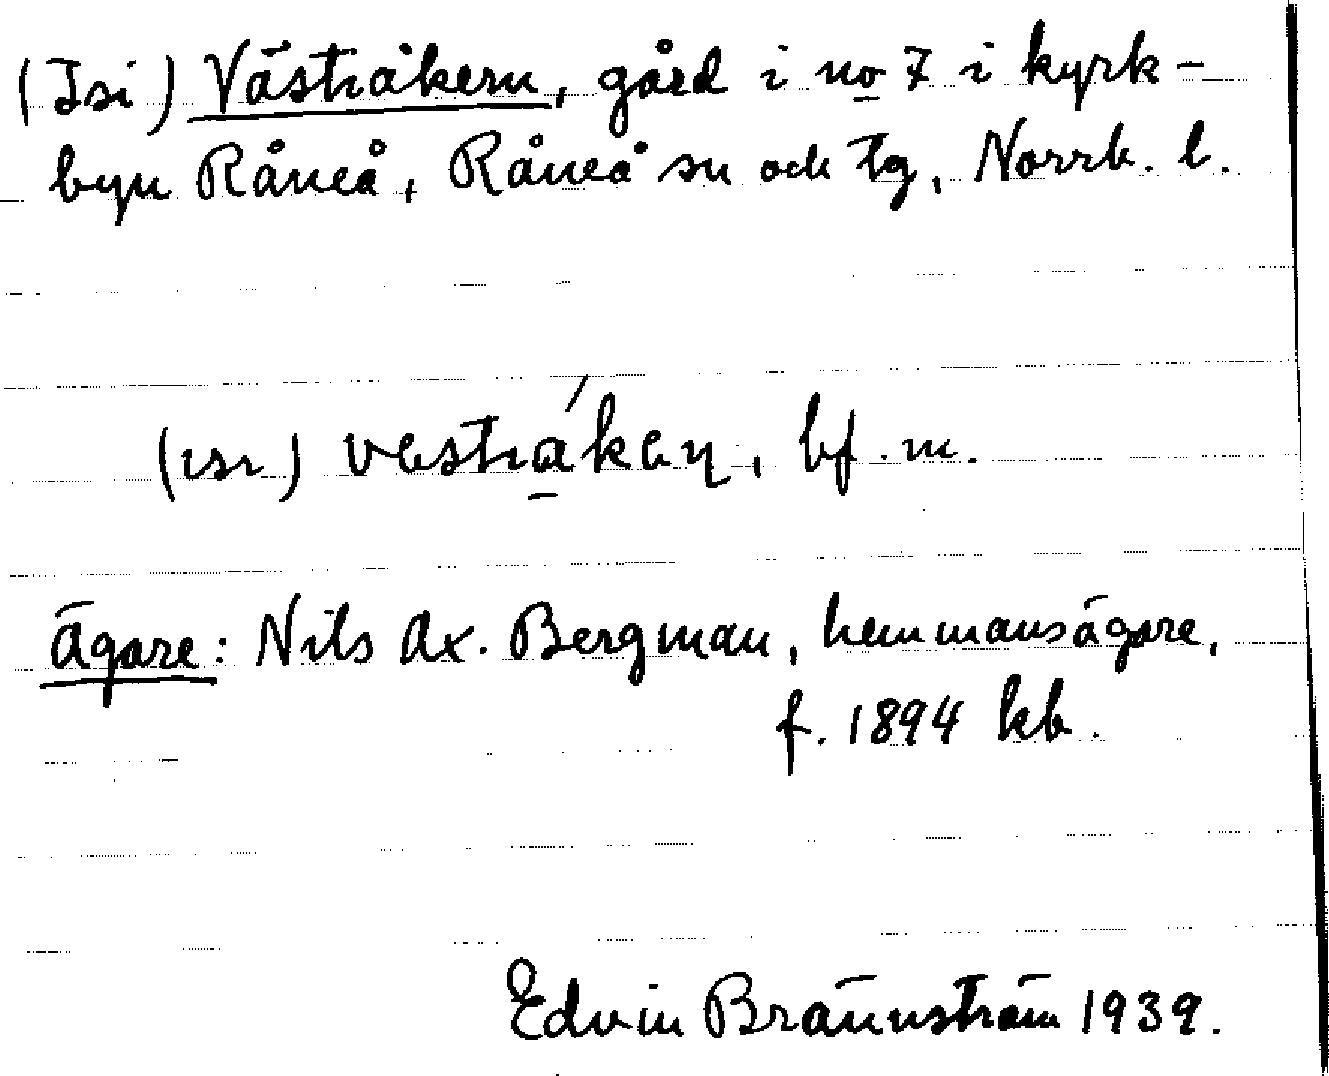 (Isi) Västråkern, gård i no 7 i kyrk-
byn Råneå, Råneå sn och tg, Norrb. l.
(ɪsɪ) vestrá̱kɐɳ, bf. m.
Ägare: Nils Ax. Bergman, hemmansägare,
f. 1894 kb.
Edvin Brännström 1939.